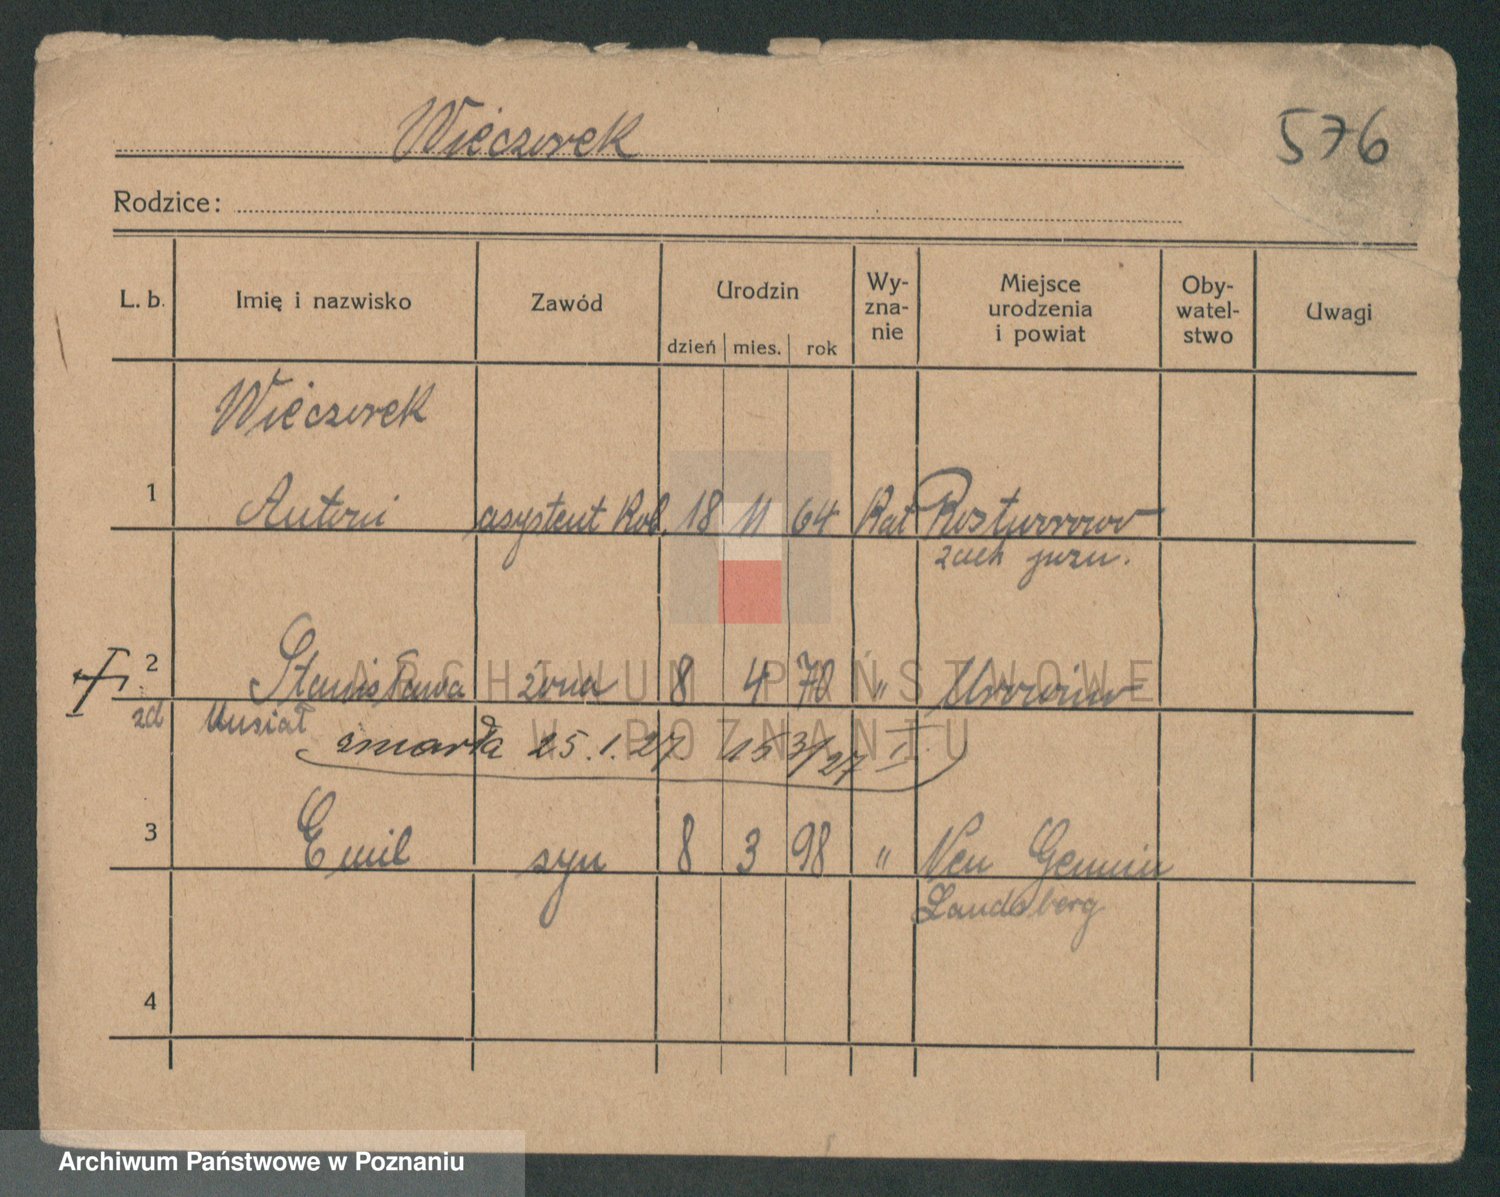 Wieczorek
576
Rodzice:
L. b. Imię i nazwisko Zawód Urodzin dzień mies. rok Wy-zna-nie Miejsce urodzenia i powiat Oby-watel-stwo Uwagi
Wieczorek
1 Antoni asystent kol. 18 11 64 Kat Roztworowo
zach
2 Stanisława żona 8 4 70 "
zd Musiał
zmarła 25.1.27 15 3/27 I
3 Emil syn 8 3 98 " Neu Gennin
Landsberg
4
ARCHIWUM PAŃSTWOWE
W POZNANIU
Archiwum Państwowe w Poznaniu